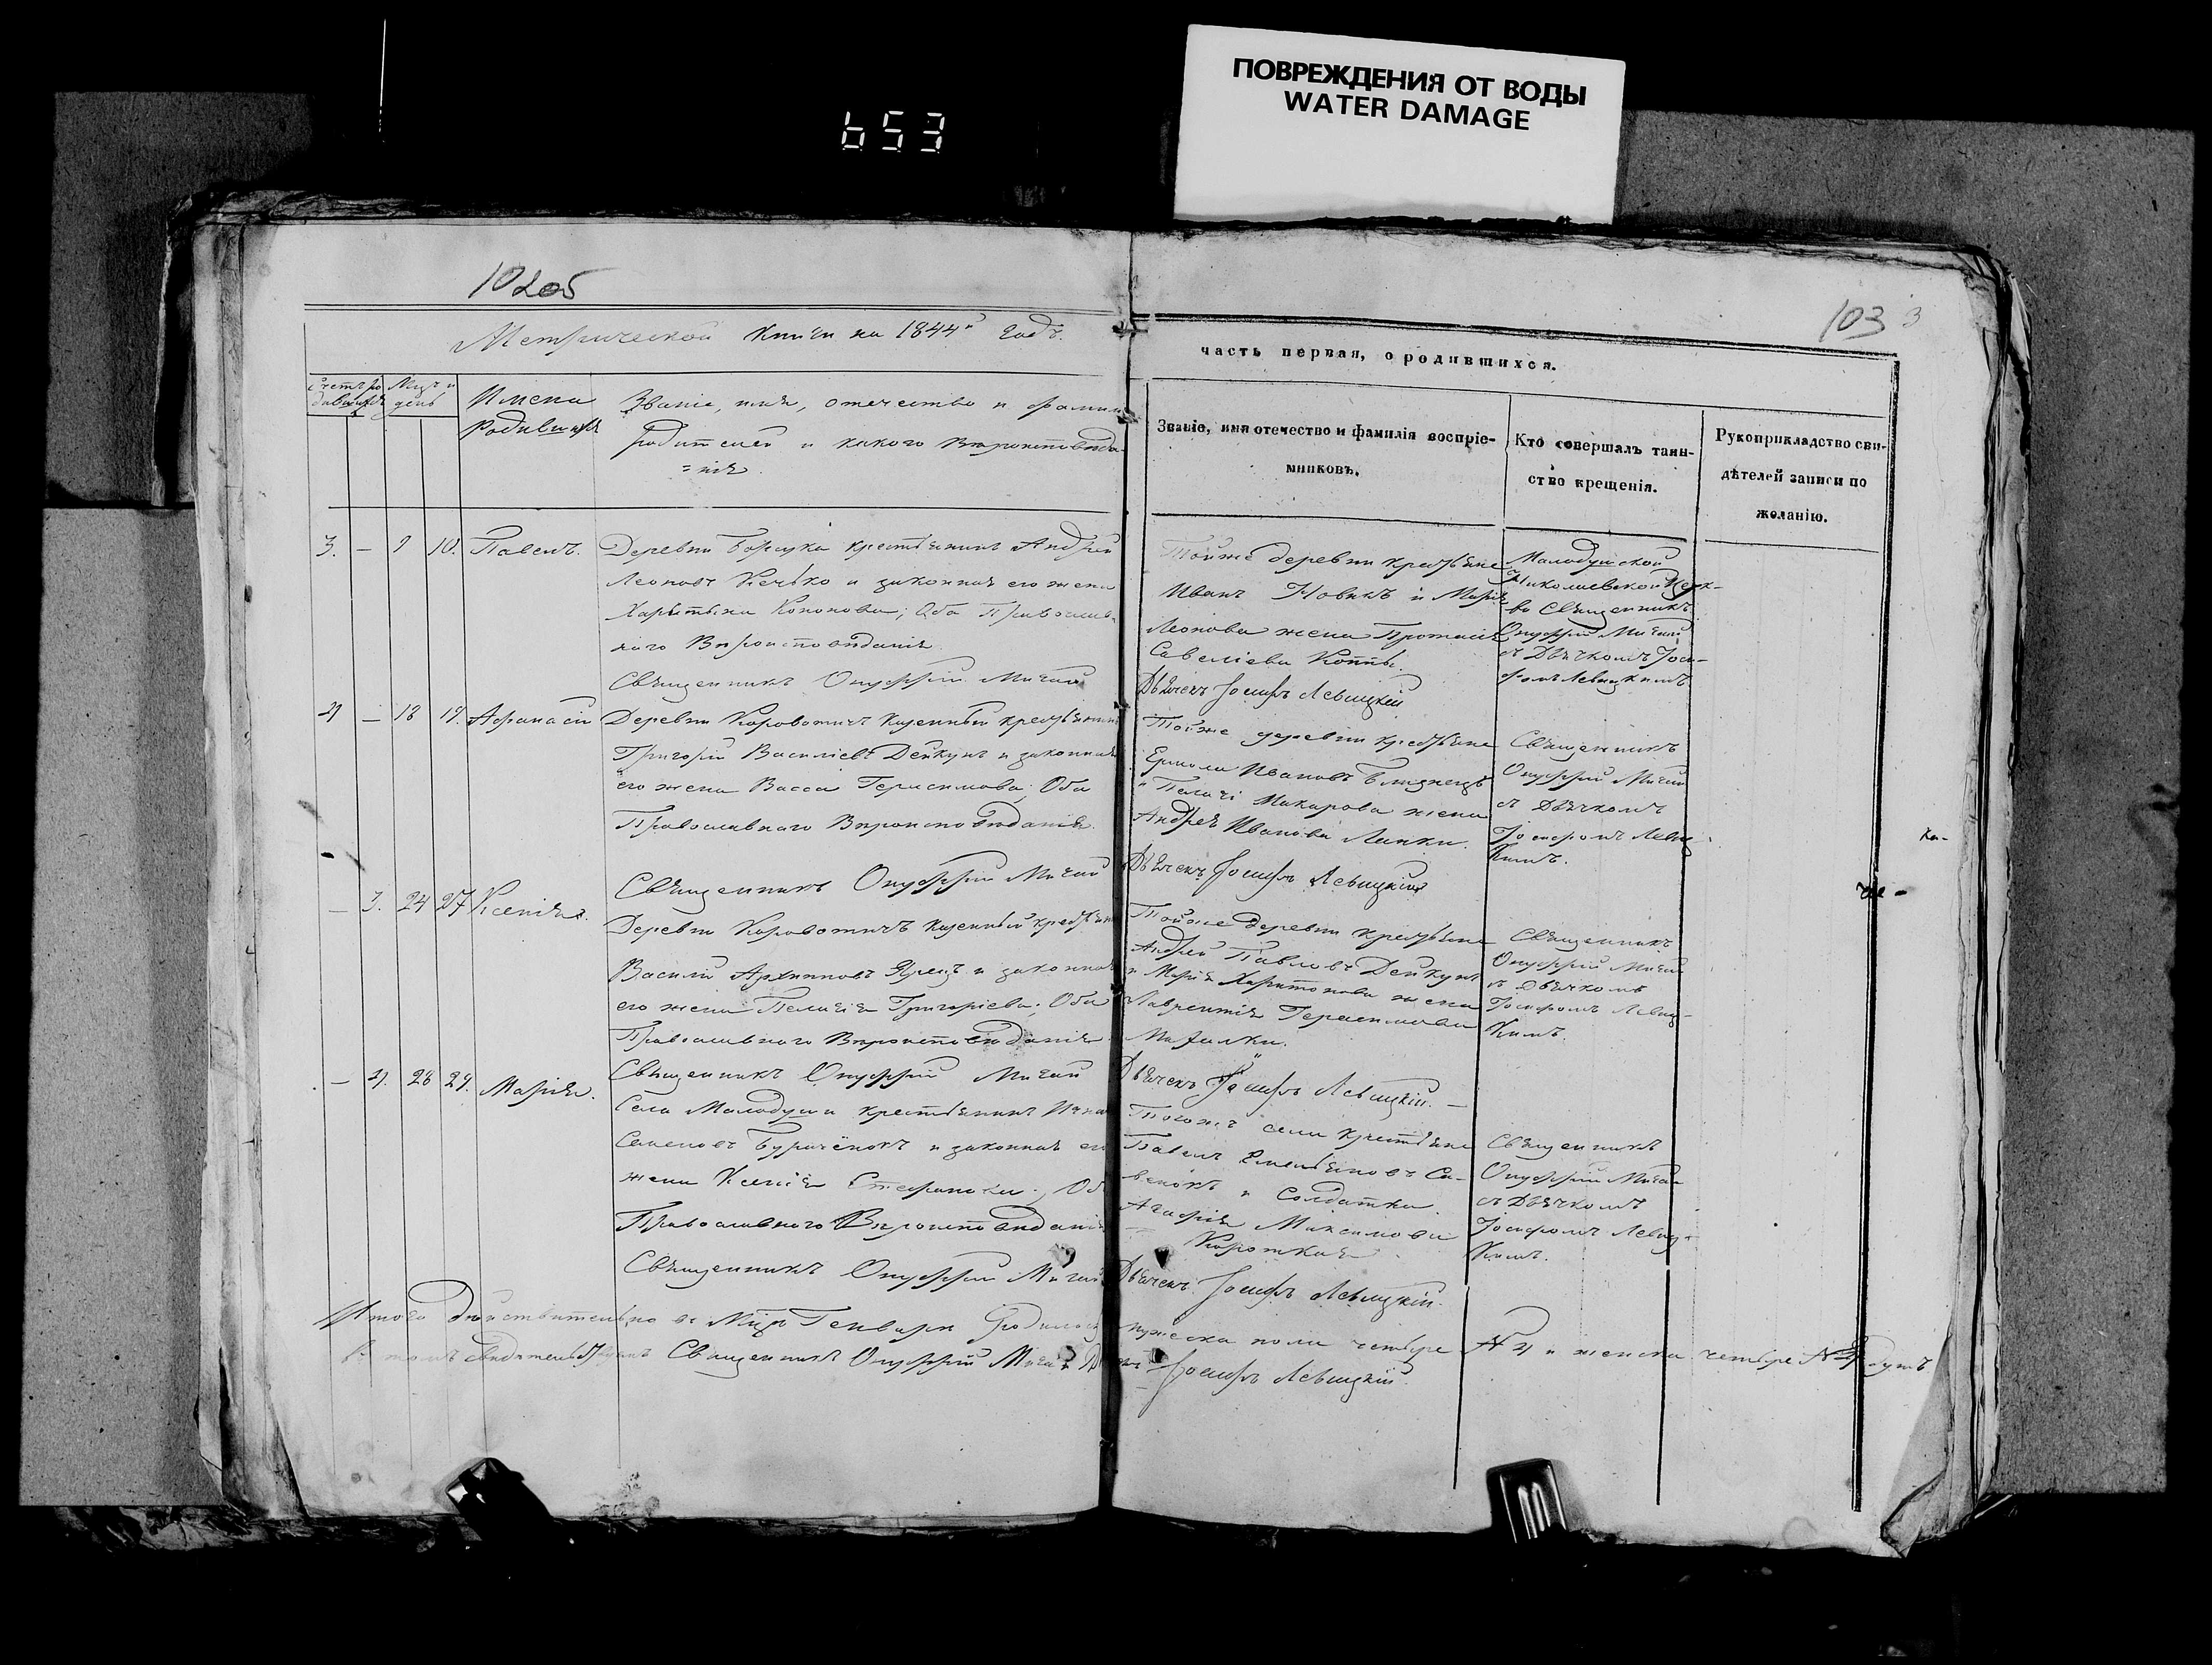 653
ПОВРЕЖДЕНИЯ ОТ ВОДЫ
WATER DAMAGE
103
3
Метрической книги на 1844й годъ.
часть первая, о родившихся.
Счетъ родившихся
Мцъ и день
Имена
Родившихся
Званіе, имя, отечество и фамилія
родителей и какого Вѣроисповѣда-
=нія.
Званіе, имя отечество и фамилія воспріе-
мниковъ.
Кто совершалъ таин-
ство крещенія.
Рукоприкладство сви-
дѣтелей записи по
желанію.
3. — 9 10. Павелъ.
Деревни Борщовка крестьянинъ Андрей
Леоновъ и законная его жена
Харытына Кононова; Оба Православ-
наго Вѣроисповѣданія.
Священникъ Онуфрій Мигай
Тойже деревни крестьяне
Иванъ Новикъ и Марія
Леонова жена Протасія
Савеліева
Дьячекъ Іосифъ Левицкій
Малодушской
Николаевской Церк-
ви Священникъ
Онуфрій Мигай
съ Дьячкомъ Іоси-
фомъ Левицкимъ.
4 — 18 19. Афанасій
Деревни Короватичъ казенный крестьянинъ
Григорій Василіевъ Дейкунъ и законная
его жена Васса Герасимова; Оба
Православнаго Вѣроисповѣданія.
Священникъ Онуфрій Мигай
Тойже деревни крестьяне
Ермола Ивановъ Близнецъ
и Макарова жена
Андрея Иванова
Дьячекъ Іосифъ Левицкій
Священникъ
Онуфрій Мигай
съ Дьячкомъ
Іосифомъ Левиц-
кимъ.
— 3. 24 27 Ксенія.
Деревни Короватичъ казенный крестьянинъ
Василій Архиповъ и законная
его жена Пелагія Григоріева; Оба
Православнаго Вѣроисповѣданія
Священникъ Онуфрій Мигай
Тойже деревни крестьяне
Андрей Павловъ Дейкунъ
и Марія Харитонова жена
Лаврентія Герасимова
Дьячекъ Іосифъ Левицкій. —
Священникъ
Онуфрій Мигай
съ Дьячкомъ
Іосифомъ Левиц-
кимъ.
— 4. 28 29. Марія.
Села Малодуша крестьянинъ
Семеновъ Бураченокъ и законная его
жена Ксенія Стефанова; Оба
Православнаго Вѣроисповѣданія
Священникъ Онуфрій Мигай
Тогожъ села крестьяне
Павелъ Емельяновъ Са-
венокъ и Солдатка
Агафія Максимова
Короткая.
Дьячекъ Іосифъ Левицкій.
Священникъ
Онуфрій Мигай
съ Дьячкомъ
Іосифомъ Левиц-
кимъ.
Итого дѣйствительно въ Мцѣ Генварѣ родилось мужеска пола четыре № 4 и женска четыре № 4
въ томъ Священникъ Онуфрій Мигай Дьячекъ Іосифъ Левицкій.